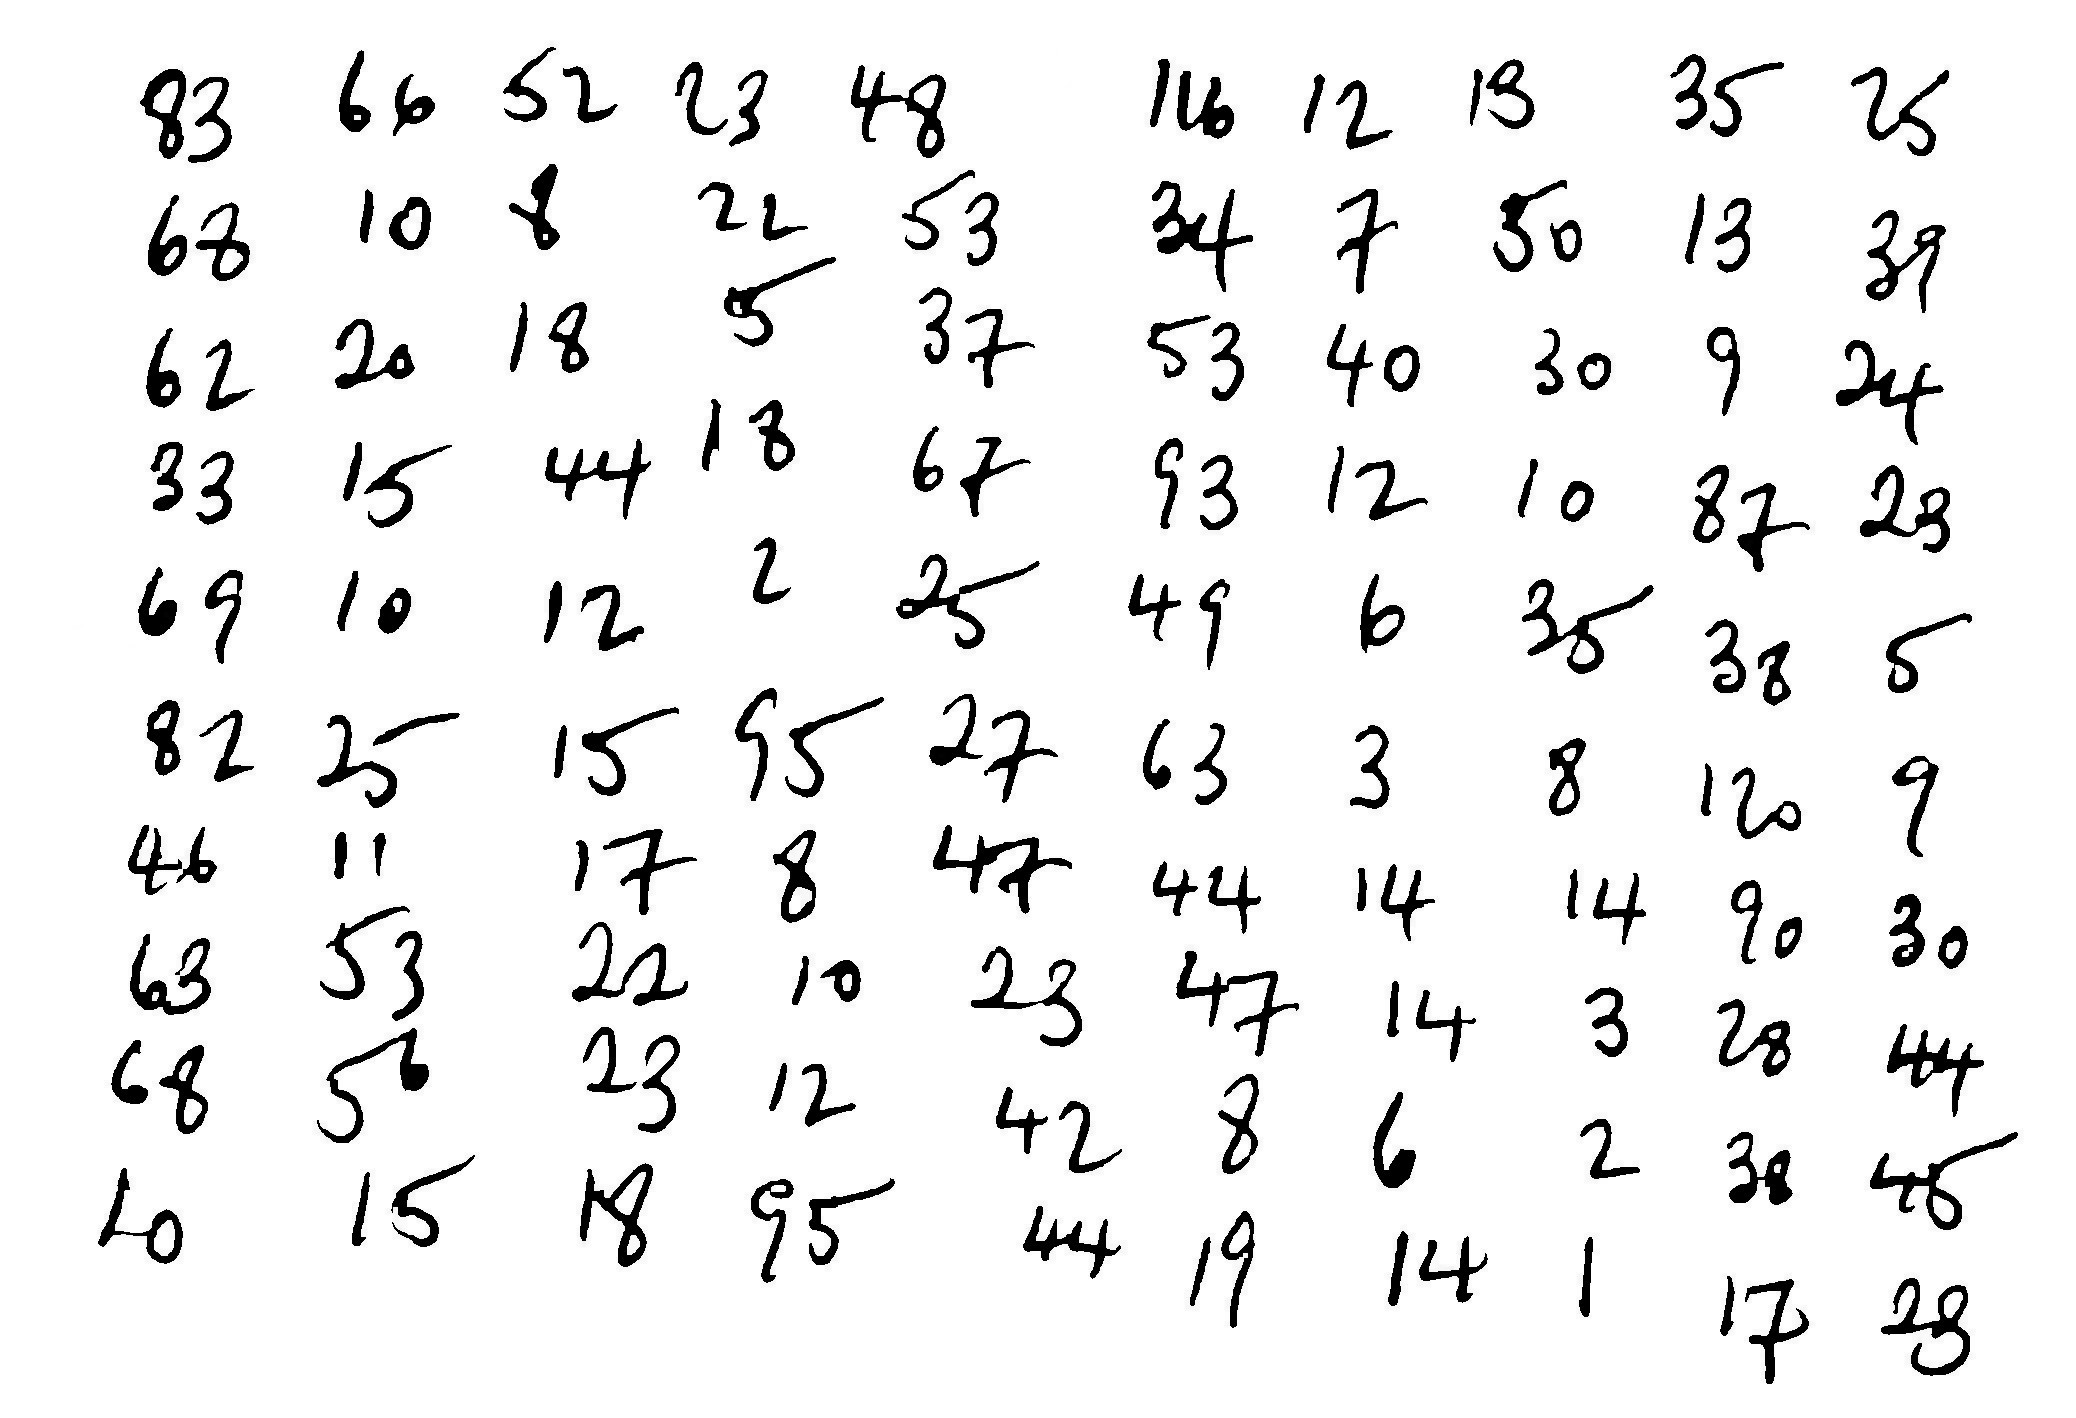 83 66 52 23 48 116 12 13 35 25
68 10 8 22 53 34 7 50 13 39
62 20 18 5 37 53 40 30 9 24
33 15 44 18 67 93 12 10 87 23
69 10 12 2 25 49 6 35 38 5
82 25 15 95 27 63 3 8 120 9
46 11 17 8 47 44 14 14 90 30
63 53 22 10 23 47 14 3 28 44
68 56 23 12 42 8 6 2 38 45
40 15 18 95 44 19 14 1 17 23